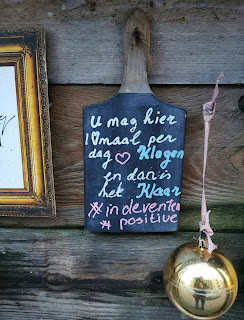 U mag hier
1 maal per
dag ♡ Klagen
en dan is
het Klaar
# in deventer
# positive